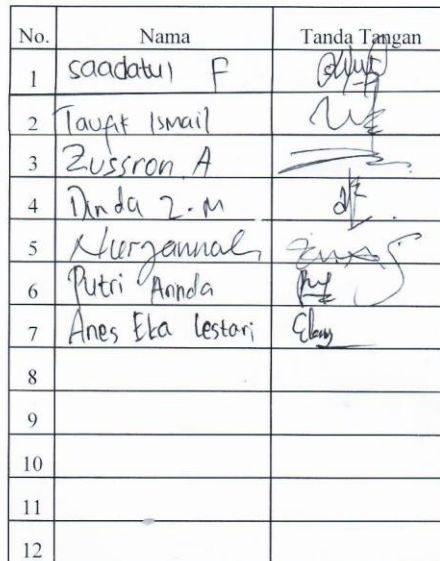 No. Nama Tanda Tangan
1 Saadatul F
2 Taufik Ismail
3 Zussron A
4 Dinda Z.M
5 Nurjannah
6 Putri Annda
7 Anes Eka lestari
8
9
10
11
12